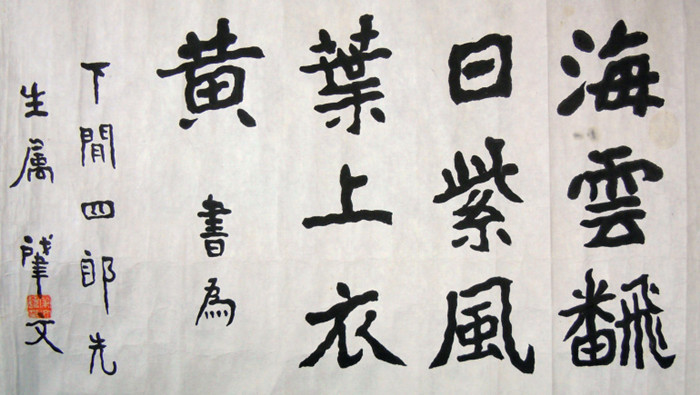 海雲飜
日紫風
葉上衣
黄 書為
下閒四郎先
生属 肈文